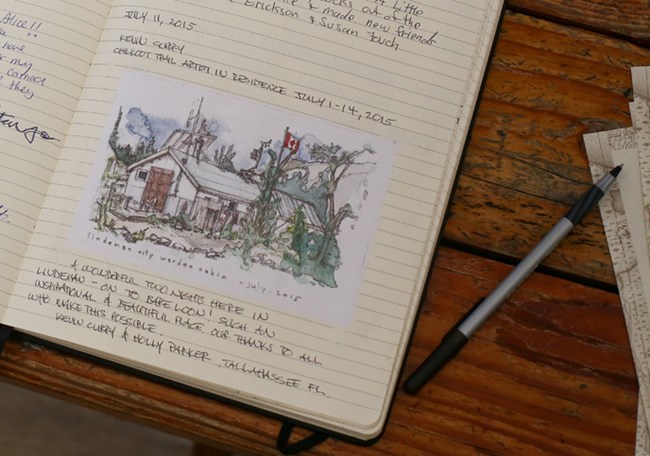 Alice!!
have
my
cameos
they
little
ocks out of the
& made new friends
Erickson & Susan Touch
JULY 11, 2015
KEVIN CURRY
CHILKOOT TRAIL ARTIST IN RESIDENCE JULY 1-14, 2015
lindeman city warden cabin - july, 2015
A WONDERFUL TWO NIGHTS HERE IN
LINDEMAN - ON TO BARE LOON! SUCH AN
INSPIRATIONAL & BEAUTIFUL PLACE. OUR THANKS TO ALL
WHO MAKE THIS POSSIBLE
KEVIN CURRY & HOLLY BANKER. TALLAHASSEE FL.